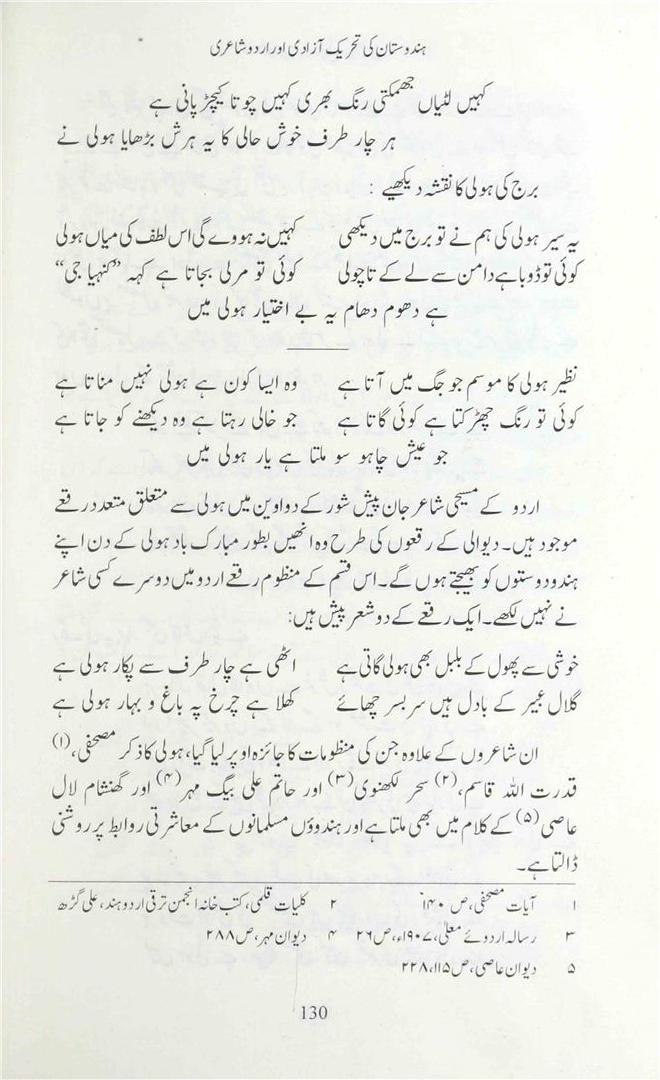 ہندوستان کی تحریک آزادی اور اردو شاعری
کہیں لٹیاں جھمکتی رنگ بھری کہیں چوتا کیچڑ پانی ہے
ہر چار طرف خوش حالی کا یہ ہرش بڑھایا ہولی نے
برج کی ہولی کا نقشہ دیکھیے :
یہ سیر ہولی کی ہم نے تو برج میں دیکھی کہیں نہ ہووے گی اس لطف کی میاں ہولی
کوئی تو ڈوبا ہے دامن سے لے کے تا چولی کوئی تو مرلی بجاتا ہے کہہ ”کنہیا جی“
ہے دھوم دھام یہ بے اختیار ہولی میں
نظیر ہولی کا موسم جو جگ میں آتا ہے وہ ایسا کون ہے ہولی نہیں مناتا ہے
کوئی تو رنگ چھڑکتا ہے کوئی گاتا ہے جو خالی رہتا ہے وہ دیکھنے کو جاتا ہے
جو عیش چاہو سو ملتا ہے یار ہولی میں
اردو کے مسیحی شاعر جان پیش شور کے دواوین میں ہولی سے متعلق متعدد رقعے
موجود ہیں۔ دیوالی کے رقعوں کی طرح وہ انھیں بطور مبارک باد ہولی کے دن اپنے
ہندو دوستوں کو بھیجتے ہوں گے۔ اس قسم کے منظوم رقعے اردو میں دوسرے کسی شاعر
نے نہیں لکھے۔ ایک رقعے کے دو شعر پیش ہیں:
خوشی سے پھول کے بلبل بھی ہولی گاتی ہے اٹھی ہے چار طرف سے پکار ہولی ہے
گلال عبیر کے بادل ہیں سربسر چھائے کھلا ہے چرخ پہ باغ و بہار ہولی ہے
ان شاعروں کے علاوہ جن کی منظومات کا جائزہ اوپر لیا گیا، ہولی کا ذکر مصحفی،(۱)
قدرت اللہ قاسم،(۲) سحر لکھنوی(۳) اور حاتم علی بیگ مہر(۴) اور گھنشام لال
عاصی(۵) کے کلام میں بھی ملتا ہے اور ہندوؤں مسلمانوں کے معاشرتی روابط پر روشنی
ڈالتا ہے۔
۱ آیات مصحفی، ص ۱۴۰ ۲ کلیات قلمی، کتب خانہ انجمن ترقی اردو ہند، علی گڑھ
۳ رسالہ اردوئے معلیٰ، ۱۹۰۷ء، ص ۲۶ ۴ دیوان مہر، ص ۲۸۸
۵ دیوان عاصی، ص ۱۱۵، ۲۲۸
130